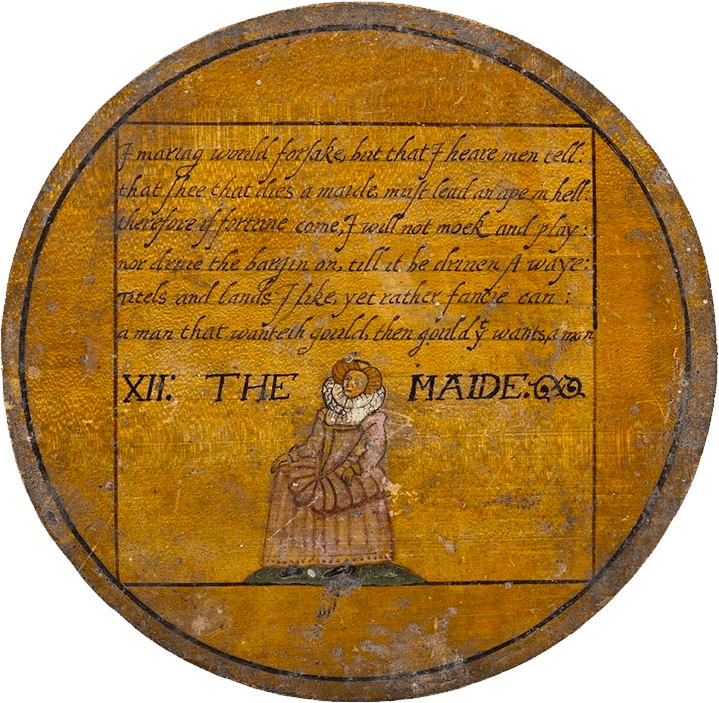 I mariag would forsake, but that I heare men tell:
that shee that dies a maide, must lead an ape in hell.
therefore if fortune come, I will not mock and play:
nor drive the bargin on, till it be driuen A waye:
titels and lands I like, yet rather fancie can:
a man that wanteth gould, then gould yͭ wants, a man
XII: THE MAIDE: